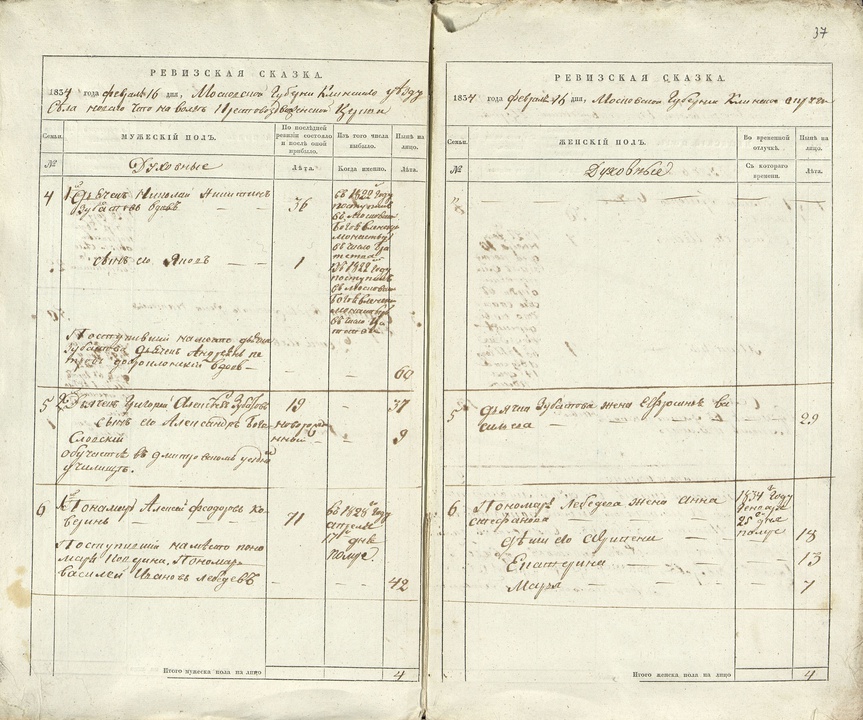 РЕВИЗСКАЯ СКАЗКА.
1834 года февраля 16 дня, Московской Губерни Клинского уезду
Села
Семьи.
МУЖЕСКІЙ ПОЛЪ.
По последней ревизіи состояло и после оной прибыло.
Изъ того числа выбыло.
Ныне на лицо.
№
Духовные
Лѣта.
Когда именно.
Лѣта.
4
Дьячекъ Николай Никитинъ
Зубастовъ вдовъ — —
36
въ 1822 году
поступилъ
въ
въ число
сынъ его Яковъ —
1
въ 1822 году
поступилъ
въ число
Поступившій на место дьячка
Зубастова дьячекъ Андреянъ пе
тровъ вдовъ —
— —
60
5
Дьячекъ Григорій Алексеевъ Зубастовъ
19
—
37
сынъ его Александръ Бого
словскій
новорожденный
—
9
обучается въ дмитровскомъ уездномъ
училище.
6
Пономарь Алексей феодоровъ Ко
веринъ — —
71
въ 1828 году
апреля
17 дня
помре.
Поступившій на место поно
маря Коверина, Пономарь
Василей Ивановъ Лебедевъ
— —
42
Итого мужеска пола на лицо
4
37
РЕВИЗСКАЯ СКАЗКА.
1834 года февраля 16 дня, Московской Губерни Клинской округи
Семьи.
ЖЕНСКІЙ ПОЛЪ.
Во временной отлучкѣ.
Ныне на лицо.
№
Духовные
Съ котораго времени.
Лѣта.
„
5
дьячка Зубастова жена Ефросинья Ва
сильева —
29
6
Пономаря Лебедева жена Анна
стефанова —
1834 году
генваря
25 дня
помре
дѣти его
— —
18
Екатерина — —
13
Марья — —
7
Итого женска пола на лицо
4